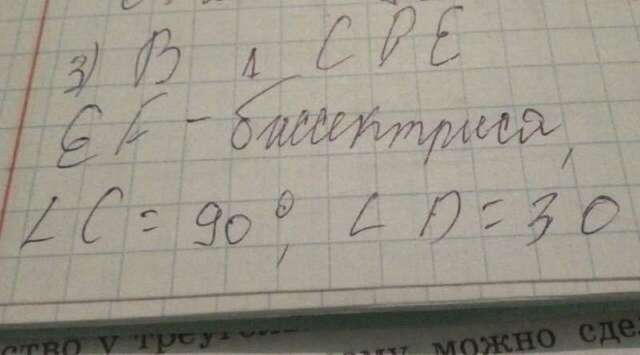 3) В Δ CDE
EF - биссектриса,
∠C = 90°, ∠D = 30
ство у треуг
можно сде